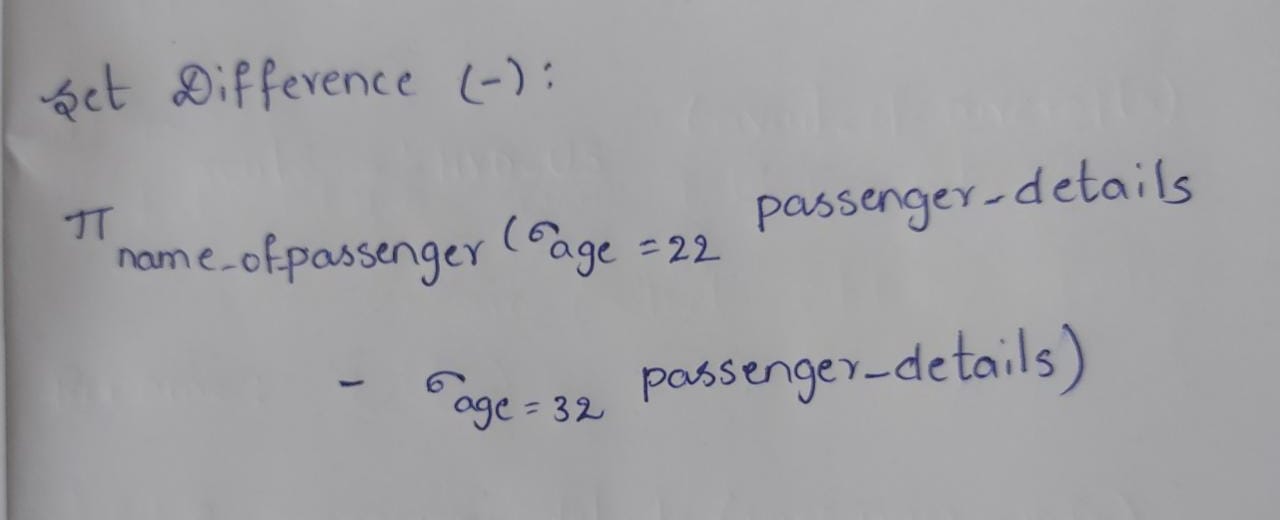 Set Difference (-):
π name_of_passenger (σ age = 22 passenger_details
- σ age = 32 passenger_details)